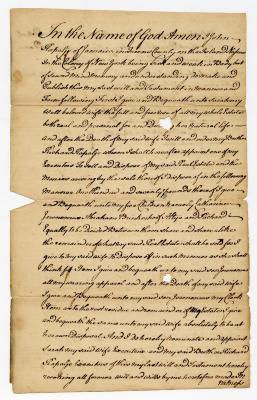 In the Name of God Amen I John
Rapalje of Jamaica in Queens County on the Island Nassau
in the Colony of New York being Sick and weak in Body but
of Sound Mind memory and understanding do make and
Publish this my last will and Testament in manner and
Form following First I give and Bequeath unto Sarah my
well beloved wife the full and income of all my whole Estate
both real and personal for and During her natural life
and after the Death of my said wife I will and order my Brother
Richard Rapalje whom I shall hereafter appoint one of my
Executors To Sell and Dispose of my said Real Estate and the
Monies arising by the sale thereof I dispose of in the following
Manner One Hundred and twenty pounds thereof I give
and Bequeath unto my five Children namely Catherine
Jeronemus Abraham and Richard
Equally to be Divided Between them share and share alike
the remainder of what my said Real Estate shall be sold for I
give to my said wife to dispose of in such manner as she shall
think fit Item I give and bequeath unto my said son Jeronemus
all my wearing apparel and after the Death of my said wife
I give and Bequeath unto my said son Jeronemus my Clock
Item as to the rest residue and remainder of my Estate I give
and bequeath the same unto my said wife absolutely to be at
her own disposal And I do hereby nominate and appoint
Sarah my said wife Executrix and my said Brother Richard
Rapalje Executor of this my last will and Testament hereby
revoking all former wills by me heretofore made In
witness